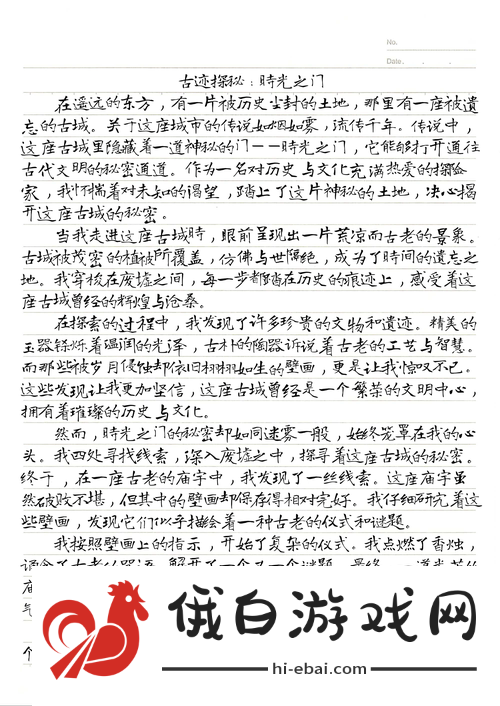 No.
Date. . .
古迹探秘：時光之门
在遥远的东方，有一片被历史尘封的土地，那里有一座被遗
忘的古城。关于这座城市的传说如烟如雾，流传千年。传说中，
这座古城里隐藏着一道神秘的门——時光之门，它能够打开通往
古代文明的秘密通道。作为一名对历史与文化充满热爱的探险
家，我怀揣着对未知的渴望，踏上了这片神秘的土地，决心揭
开这座古城的秘密。
当我走进这座古城時，眼前呈现出一片荒凉而古老的景象。
古城被茂密的植被所覆盖，仿佛与世隔绝，成为了时间的遗忘之
地。我穿梭在废墟之间，每一步都踏在历史的痕迹上，感受着这
座古城曾经的辉煌与沧桑。
在探索的过程中，我发现了许多珍贵的文物和遗迹。精美的
玉器铄烁着温润的光泽，古朴的陶器诉说着古老的工艺与智慧。
而那些被岁月侵蚀却依旧栩栩如生的壁画，更是让我惊叹不已。
这些发现让我更加坚信，这座古城曾经是一个繁荣的文明中心，
拥有着璀璨的历史与文化。
然而，時光之门的秘密却如同迷雾一般，始终笼罩在我的心
头。我四处寻找线索，深入废墟之中，探寻着这座古城的秘密。
终于，在一座古老的庙宇中，我发现了一丝线索。这座庙宇虽
然破败不堪，但其中的壁画却保存得相对完好。我仔细研究着这
些壁画，发现它们似乎描绘着一种古老的仪式和谜题。
我按照壁画上的指示，开始了复杂的仪式。我点燃了香烛，
俄白游戏网
hi-ebai.com